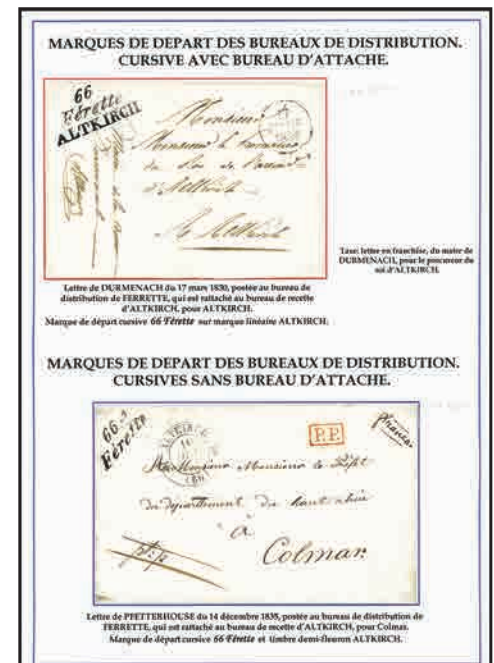 MARQUES DE DEPART DES BUREAUX DE DISTRIBUTION.
CURSIVE AVEC BUREAU D'ATTACHE.
66
Férette
ALTKIRCH
Monsieur
Monsieur le
du Roi
d'Altkirch
à Altkirch
Taxe: lettre en franchise, du maire de
DURMENACH, pour le procureur du
roi d'ALTKIRCH.
Lettre de DURMENACH du 17 mars 1830, postée au bureau de
distribution de FERRETTE, qui est rattaché au bureau de recette
d'ALTKIRCH, pour ALTKIRCH.
Marque de départ cursive 66 Férette sur marque linéaire ALTKIRCH.
MARQUES DE DEPART DES BUREAUX DE DISTRIBUTION.
CURSIVES SANS BUREAU D'ATTACHE.
66
Férette
ALTKIRCH
P.P.
Monsieur Monsieur le
du département du haut rhin
à
Colmar
Lettre de PFETTERHOUSE du 14 décembre 1835, postée au bureau de distribution de
FERRETTE, qui est rattaché au bureau de recette d'ALTKIRCH, pour Colmar.
Marque de départ cursive 66 Férette et timbre demi-fleuron ALTKIRCH.